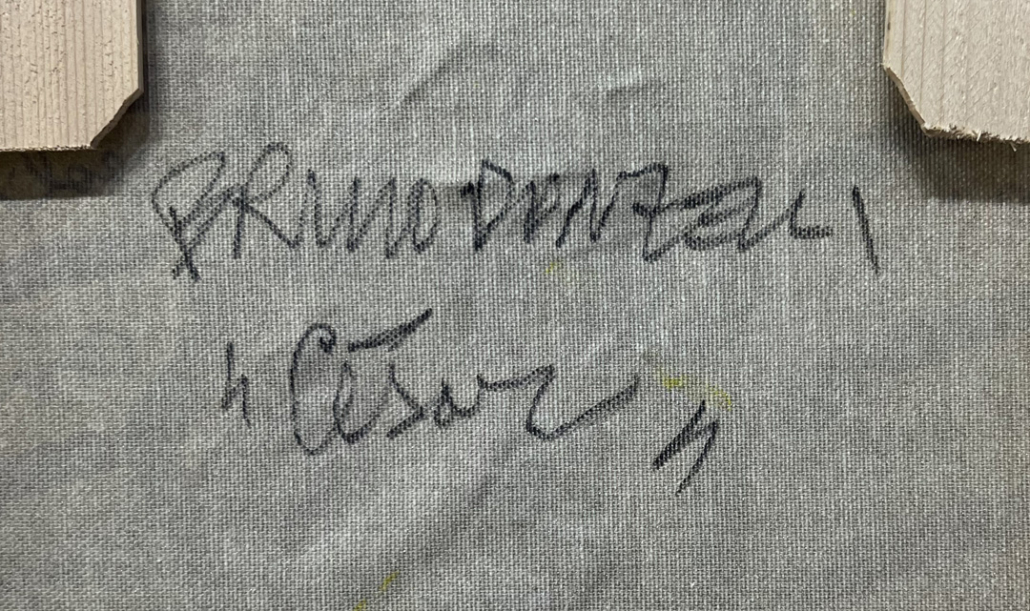 BRUNO DONZELLI
"César"